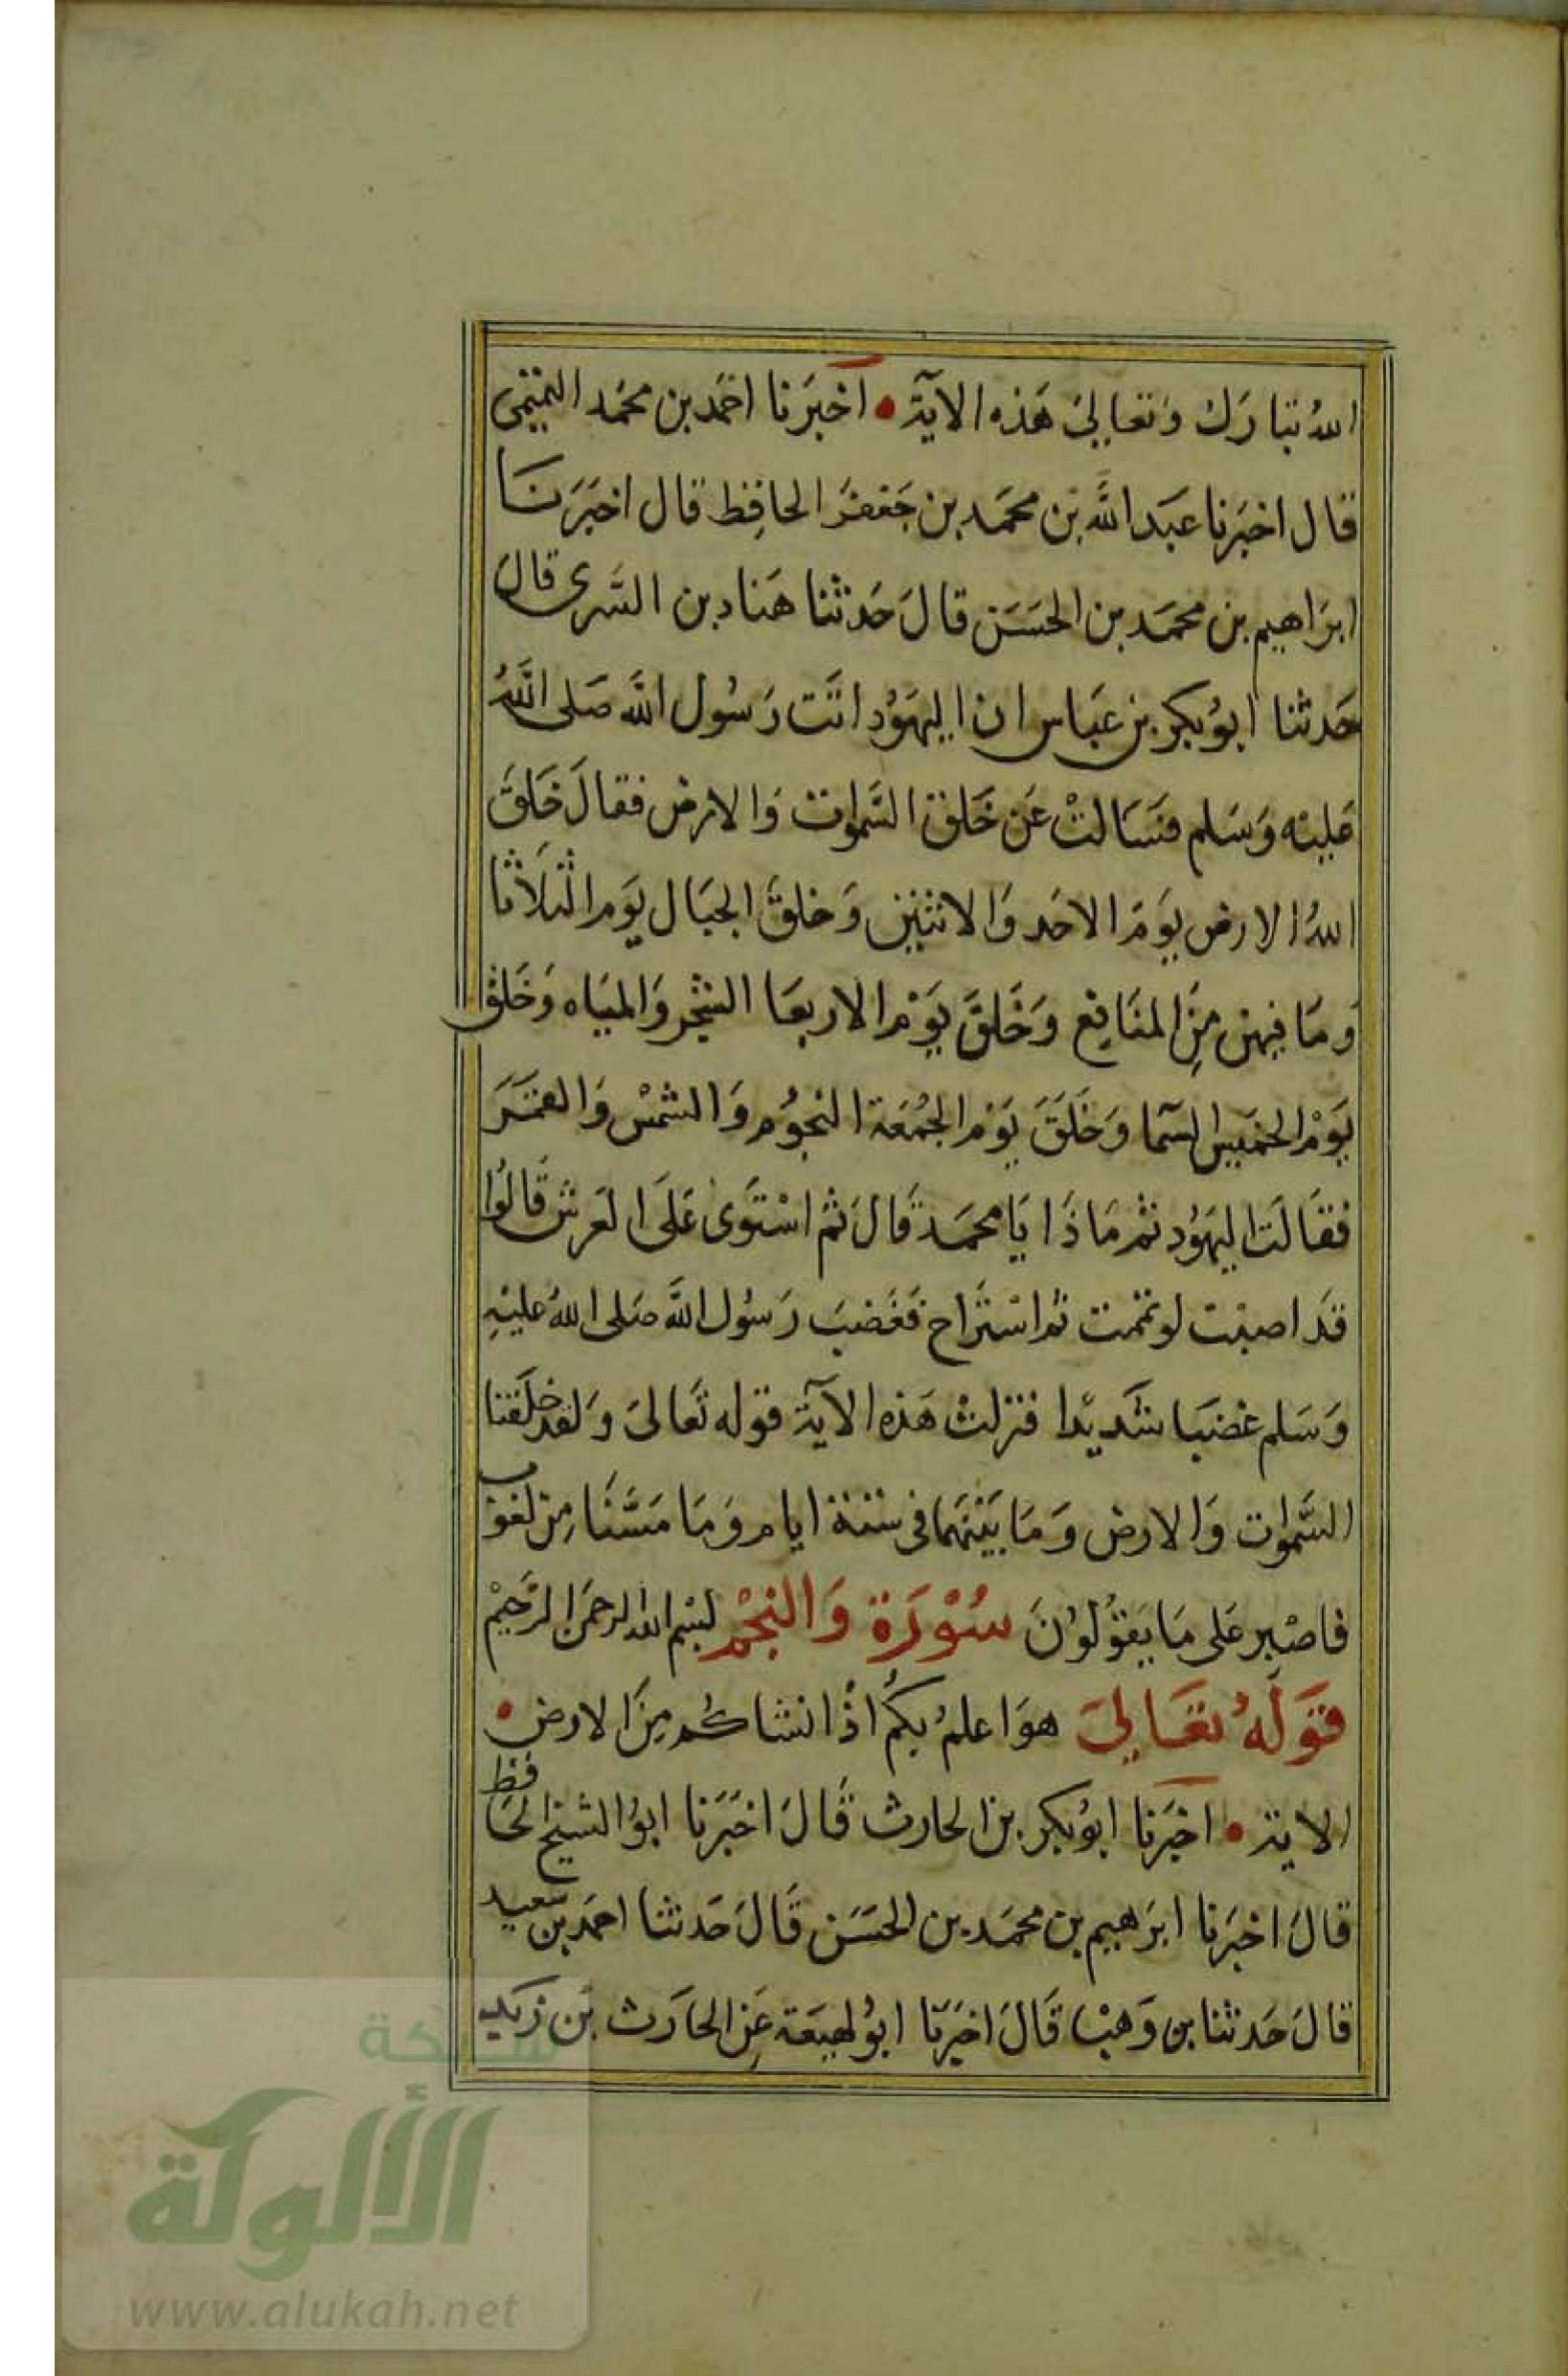 الله تبارك وتعالى هذه الآية • اخبرنا احمد بن محمد التميمى
قال اخبرنا عبد الله بن محمد بن جعفر الحافظ قال اخبرنا
ابراهيم بن محمد بن الحسن قال حدثنا هناد بن السرى قال
حدثنا ابو بكر بن عباس ان اليهود اتت رسول الله صلى الله
عليه وسلم فسالت عن خلق السموات والارض فقال خلق
الله الارض يوم الاحد والاثنين وخلق الجبال يوم الثلاثا
وما فيهن من المنافع وخلق يوم الاربعا الشجر والمياه وخلق
يوم الخميس السما وخلق يوم الجمعة النجوم والشمس والقمر
فقالت اليهود ثم ماذا يا محمد قال ثم استوى على العرش قالوا
قد اصبت لو تممت ثم استراح فغضب رسول الله صلى الله عليه
وسلم غضبا شديدا فنزلت هذه الآية قوله تعالى ولقد خلقنا
السموات والارض وما بينهما فى ستة ايام وما مسنا من لغوب
فاصبر على ما يقولون سورة والنجم بسم الله الرحمن الرحيم
قوله تعالى هو اعلم بكم اذ انشاكم من الارض •
الاية • اخبرنا ابو بكر بن الحارث قال اخبرنا ابو الشيخ الحافظ
قال اخبرنا ابرهيم بن محمد بن الحسن قال حدثنا احمد بن سعيد
قال حدثنا بن وهب قال اخبرنا ابو لهيعة عن الحارث بن زيد
شبكة
الألوكة
www.alukah.net